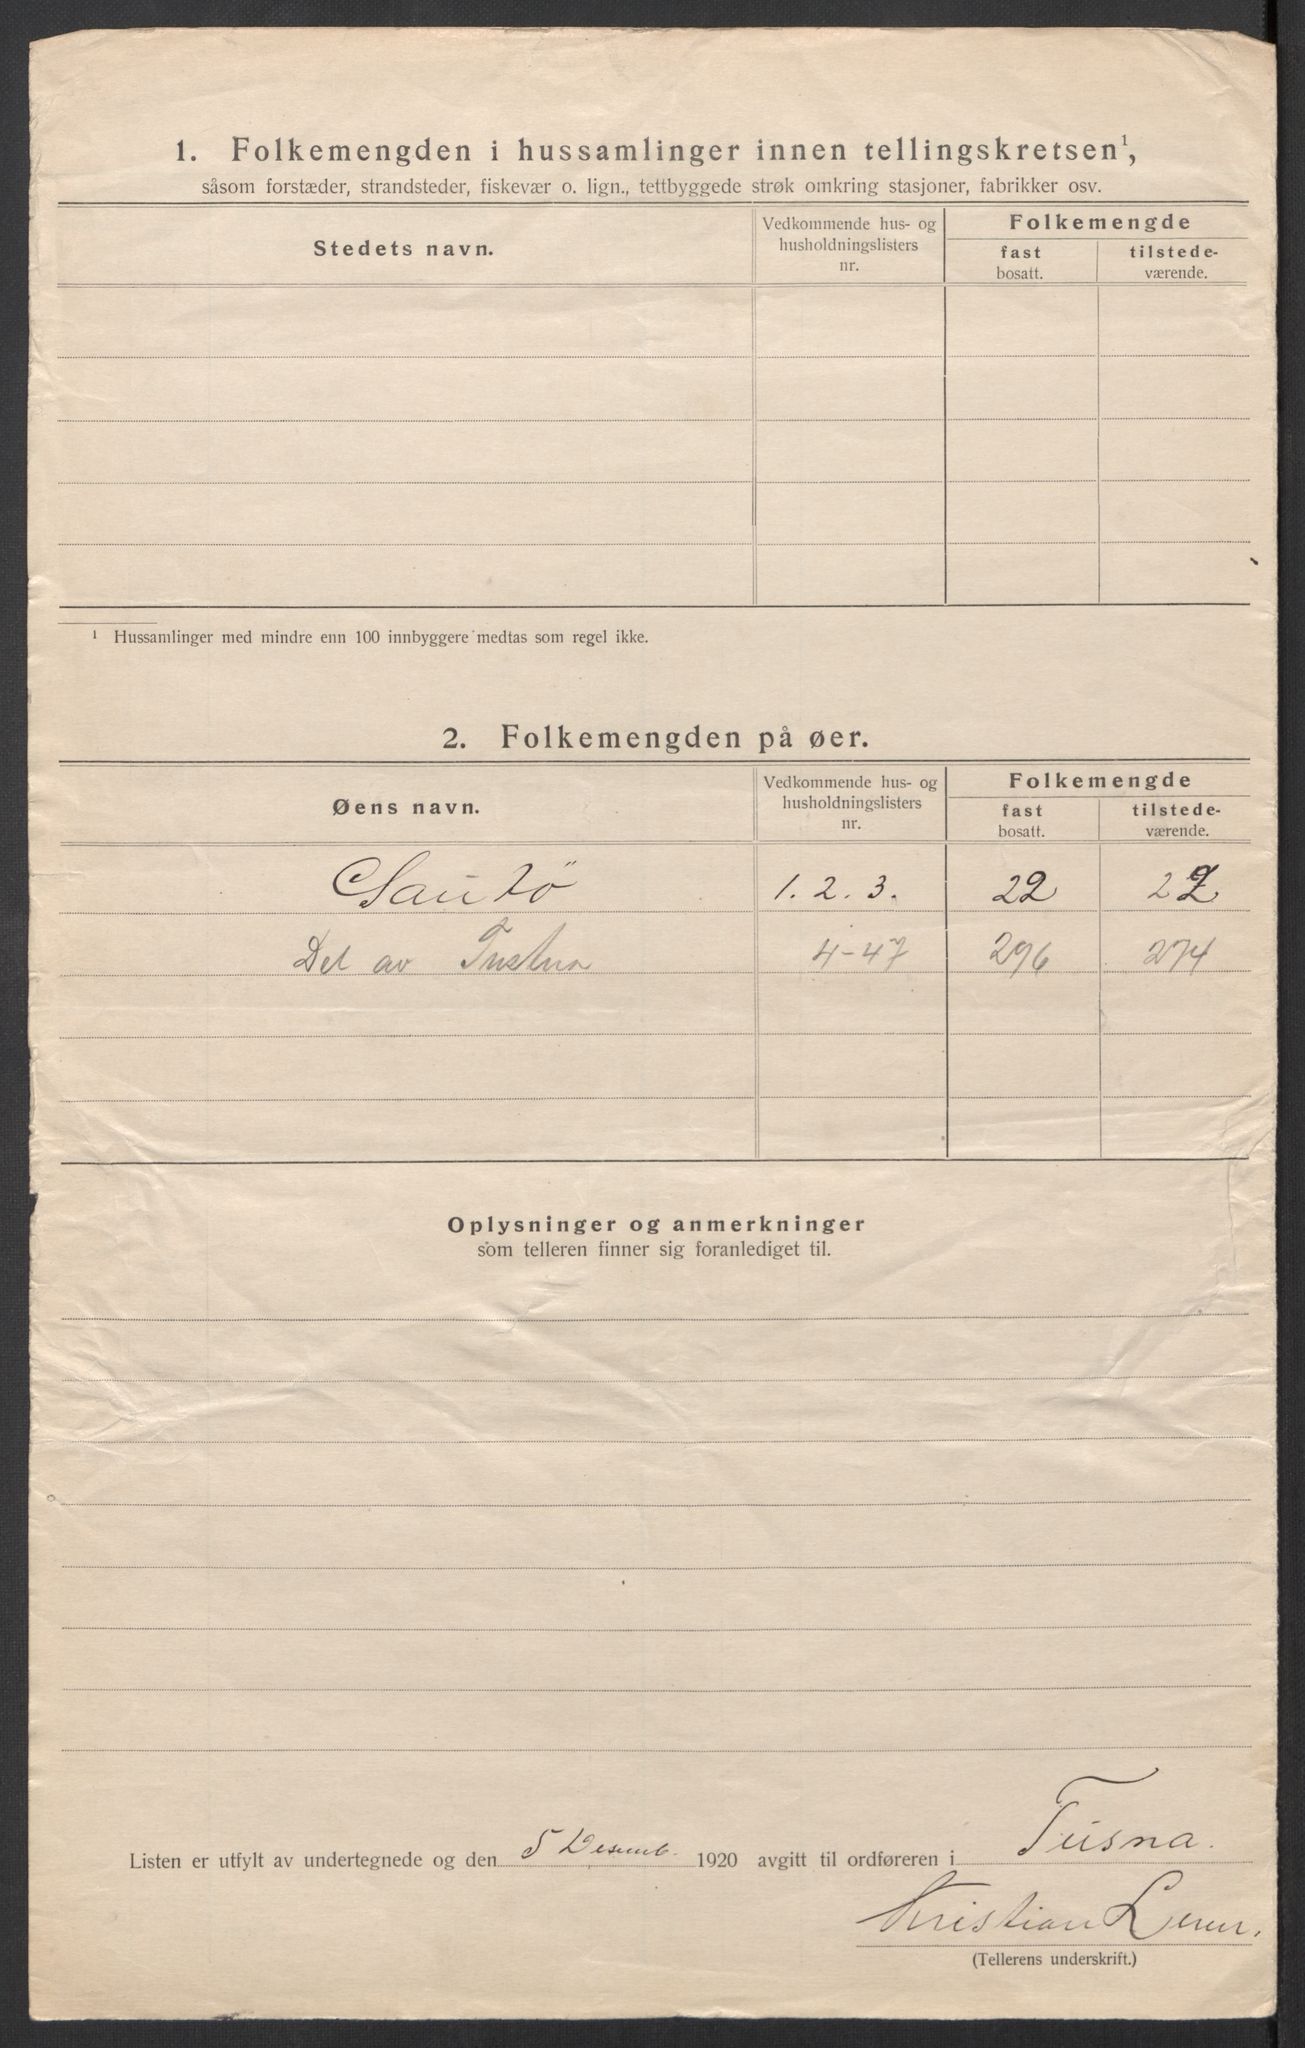 1. Folkemengden i hussamlinger innen tellingskretsen¹,
såsom forstæder, strandsteder, fiskevær o. lign., tettbyggede strøk omkring stasjoner, fabrikker osv.
Stedets navn.
Vedkommende hus- og
husholdningslisters
nr.
Folkemengde
fast
bosatt.
tilstede-
værende.
¹ Hussamlinger med mindre enn 100 innbyggere medtas som regel ikke.
2. Folkemengden på øer.
Øens navn.
Vedkommende hus- og
husholdningslisters
nr.
Folkemengde
fast
bosatt.
tilstede-
værende.
1. 2. 3. 22 22
Del av Tustna 4-47 296 274
Oplysninger og anmerkninger
som telleren finner sig foranlediget til.
Listen er utfylt av undertegnede og den 5 Desemb. 1920 avgitt til ordføreren i Tusna.
Kristian
(Tellerens underskrift.)